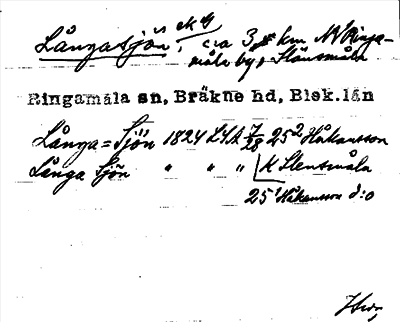 Långasjön, c:a 3,5 km NV Ringa-
måla by, Stänsmåla
Ringamåla sn, Bräkne hd, Blek. län
Långa=Sjön 1824 LSA 7/28 25² Håkansson
Långa Sjön " " " K Stensmåla
25¹ Håkansson d:o